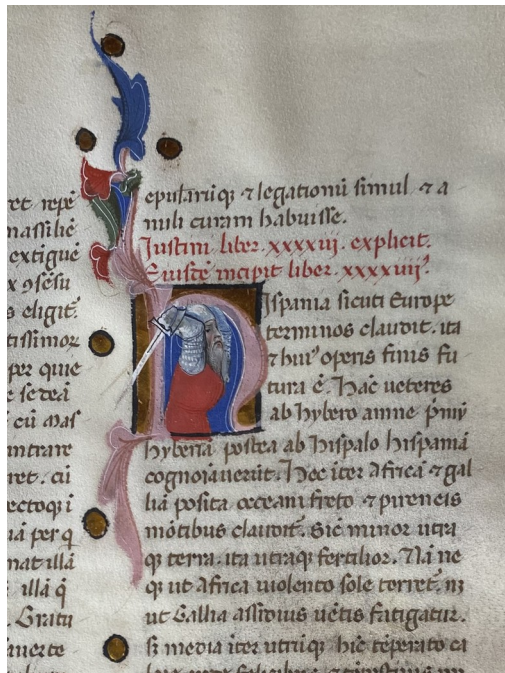 ret repe
massilie
extigue
x gsesu
s eligit.
tissimor
per quie
e se dea
cū mas
intrare
ret. cū
ectoq; i
uā per q
nat illā
illā q̄
. Gratu
auerte
epulariq; ⁊ legationū simul ⁊ a
nuli curam habuisse.
Justini liber. xxxxiij. explicit.
Eiusdē incipit liber. xxxxiiij.
HIspania sicuti Europe
terminos claudit. ita
⁊ hui⁹ operis finis fu
tura ē. Hāc ueteres
ab hybero amne p̄mū
hyberiā postea ab hispalo hispaniā
cognoīauerūt. Hec iter Africā ⁊ gal
liā posita occeani freto ⁊ pireneis
mōtibus claudit. Sic minor utra
q; terra. ita utraq; fertilior. Nā ne
q; ut Africa uiolento sole torret. nꝫ
ut Gallia assiduis uētis fatigatur.
Sꝫ media iter utrūq; hīc tēperato ca